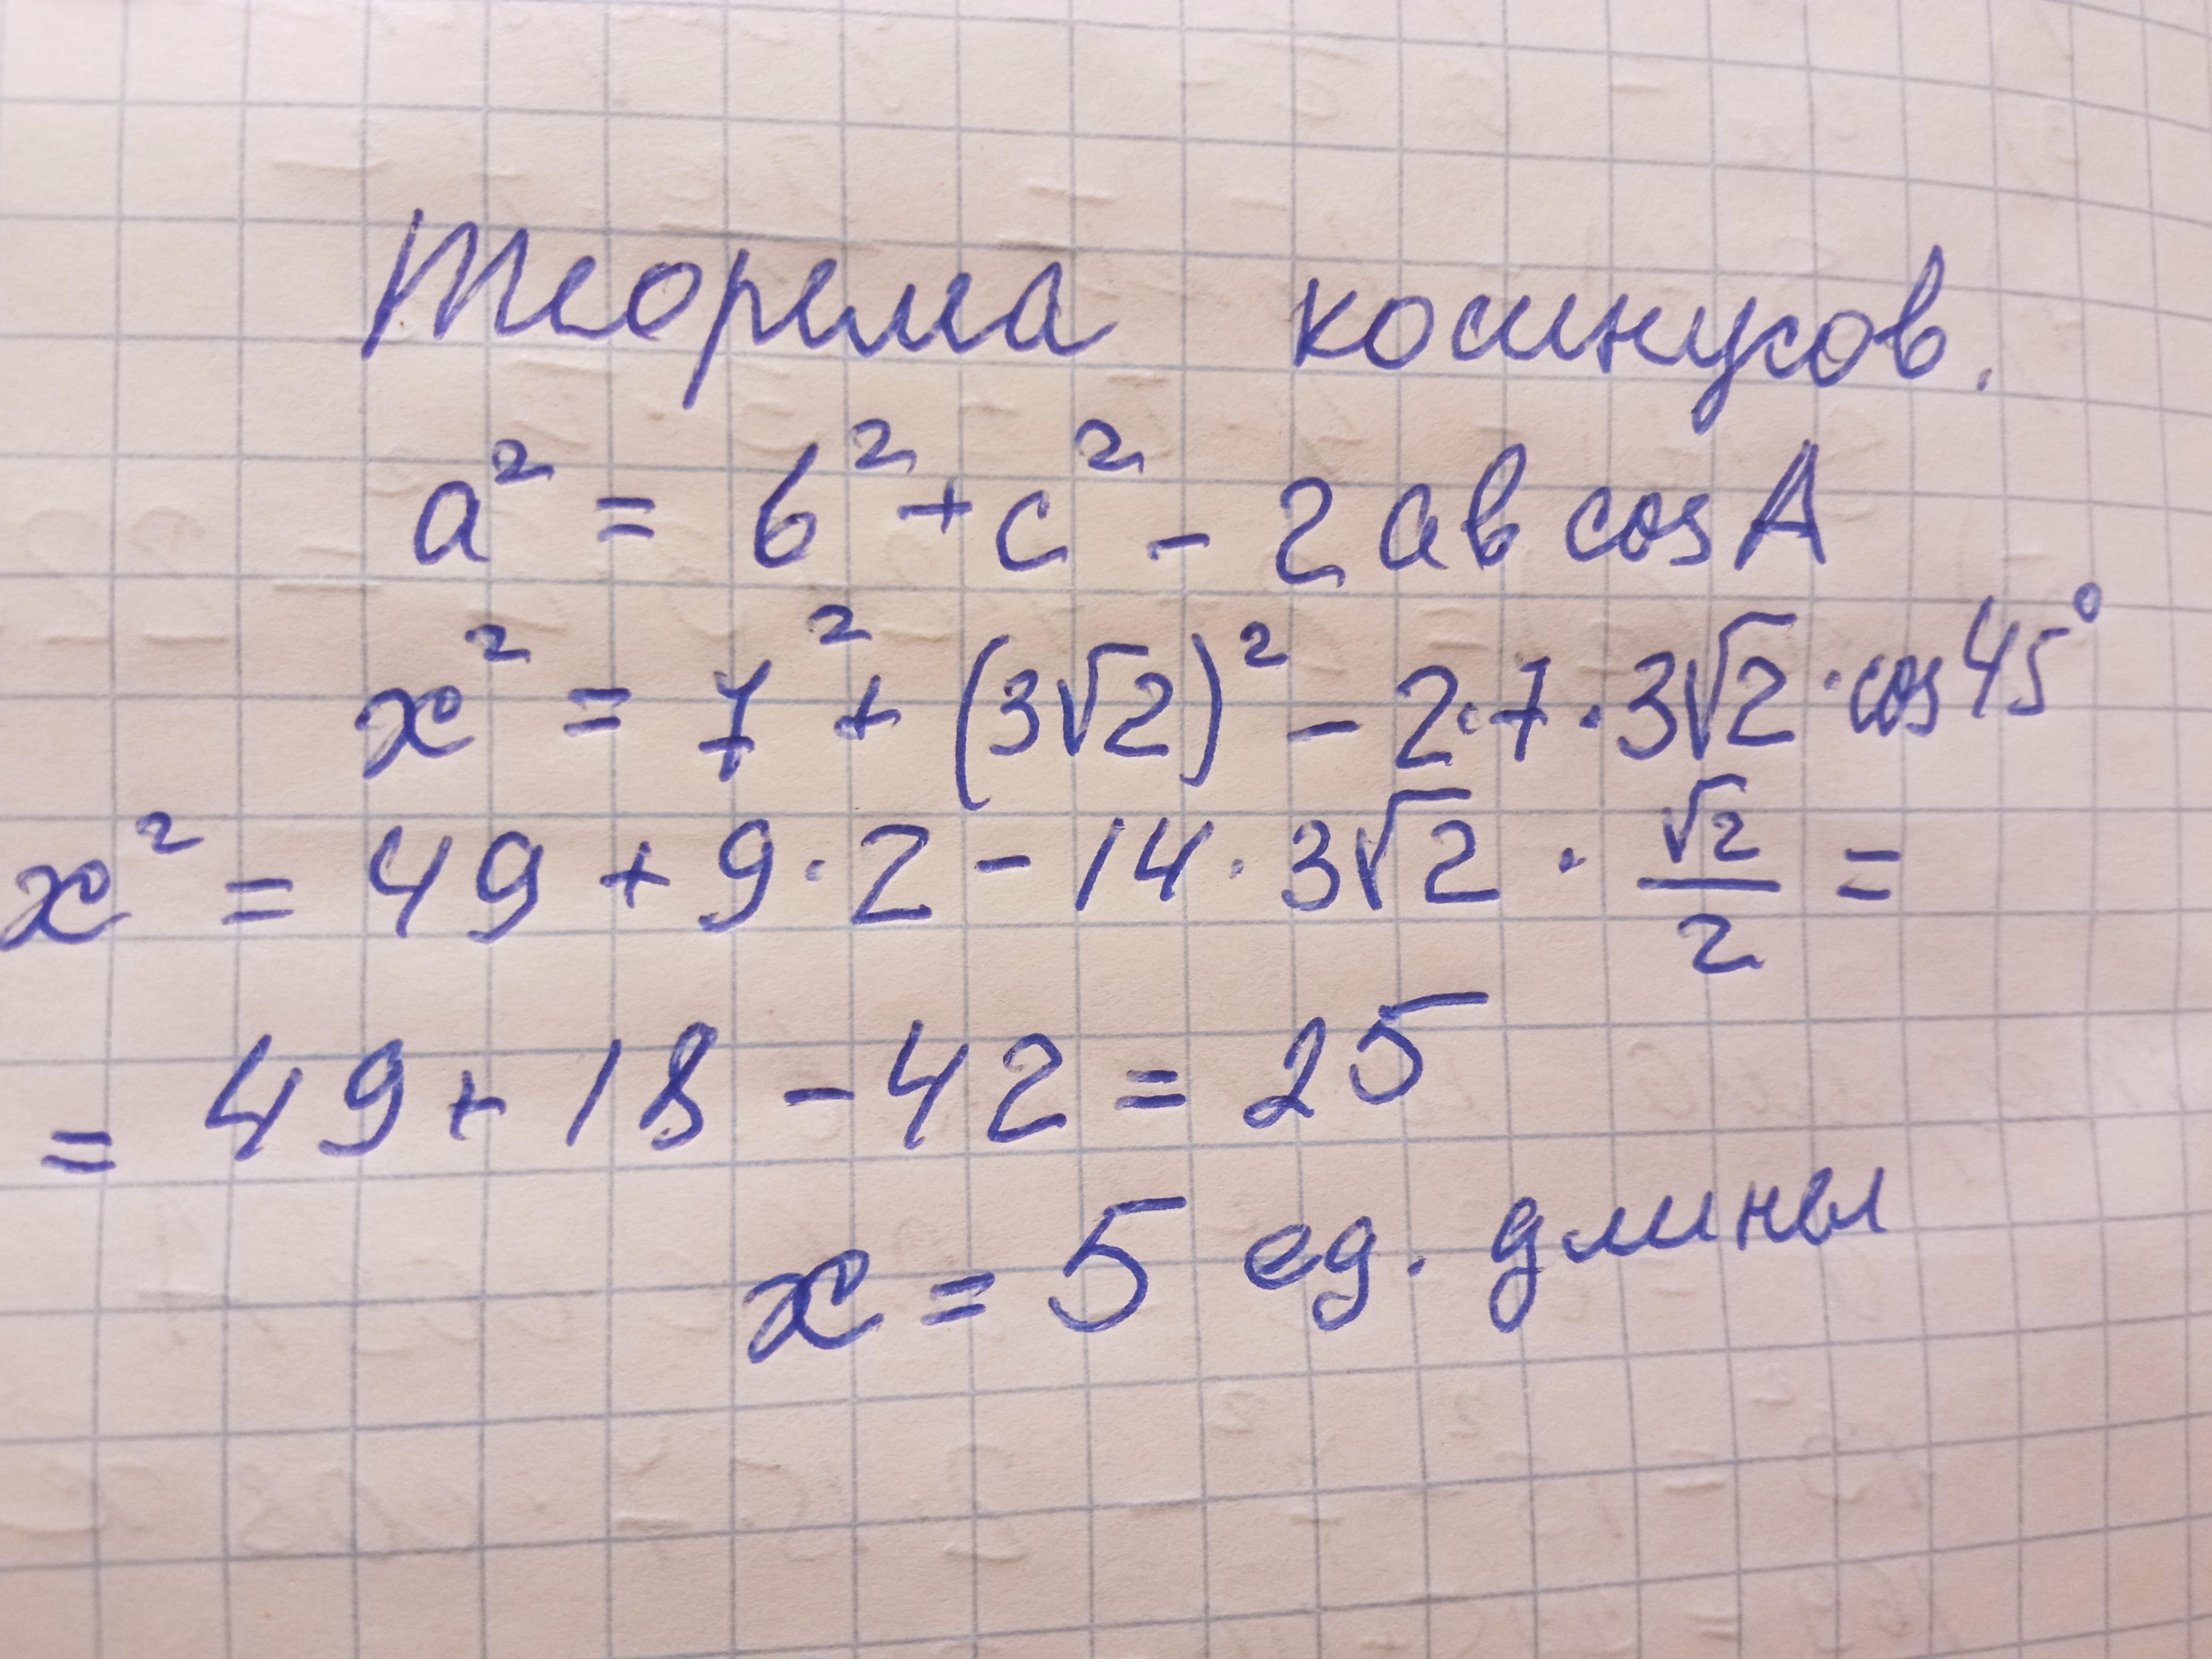 Теорема косинусов.
a² = b² + c² - 2ab cos A
x² = 7² + (3√2)² - 2·7·3√2·cos 45°
x² = 49 + 9·2 - 14·3√2 · √2/2 =
= 49 + 18 - 42 = 25
x = 5 ед. длины